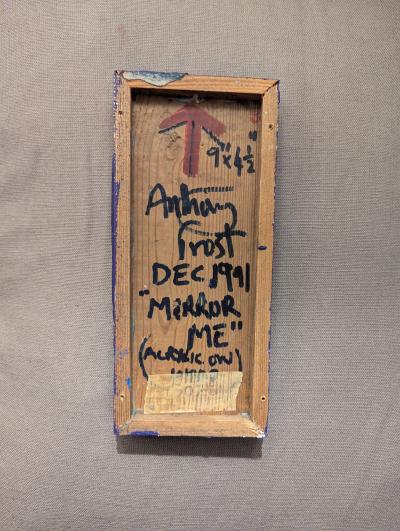 9" x 4½"
Anthony
Frost
DEC. 1991
"MIRROR
ME"
(ACRYLIC ON)